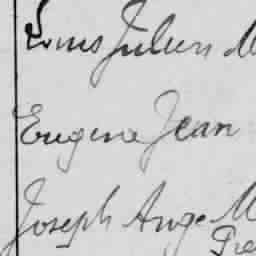 Louis Julien M
Eugene Jean
Joseph Ange M
Pre